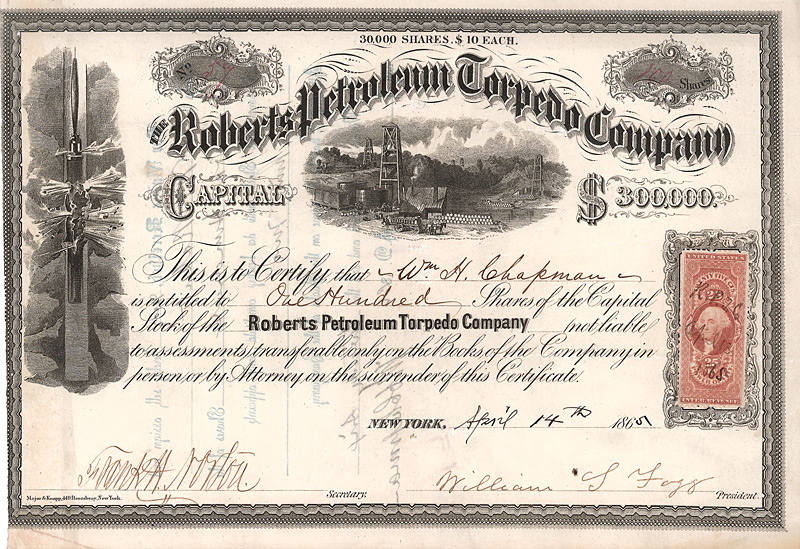 30,000 SHARES. $ 10 EACH.
No.
Shares
THE Roberts Petroleum Torpedo Company
CAPITAL $300,000.
This is to Certify, that Wm H. Chapman
is entitled to One Hundred Shares of the Capital
Stock of the Roberts Petroleum Torpedo Company not liable
to assessments, transferable only on the Books of the Company in
person, or by Attorney on the surrender of this Certificate.
UNITED STATES
25
INTER. REVENUE
NEW YORK, April 14th 1865
Frank H. Norton
William S Fogg
Major & Knapp, 449 Broadway, New York.
Secretary.
President.